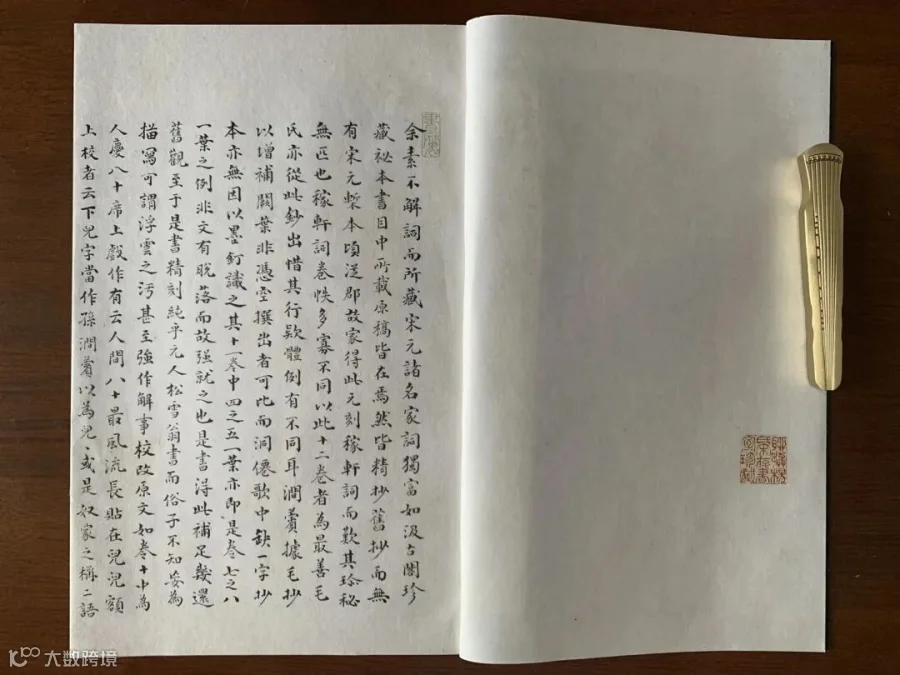 余素不解詞而所藏宋元諸名家詞獨富如汲古閣珍
藏祕本書目中所載原稿皆在焉然皆精抄舊抄而無
有宋元槧本頃從郡故家得此元刻稼軒詞而歎其珍秘
無匹也稼軒詞卷帙多寡不同以此十二卷者為最善毛
氏亦從此鈔出惜其行款體例有不同耳澗薲據毛抄
以增補闕葉非憑空撰出者可比而洞僊歌中缺一字抄
本亦無因以墨釘識之其十一卷中四之五一葉亦即是卷七之八
一葉之例非文有脫落而故强就之也是書得此補足幾還
舊觀至于是書精刻純乎元人松雪翁書而俗子不知妄為
描寫可謂浮雲之污甚至強作解事校改原文如卷十中為
人慶八十席上戲作有云人間八十最風流長貼在兒兒額
上校者云下兒字當作孫澗薲以為兒〻或是奴家之稱二語
大数跨境